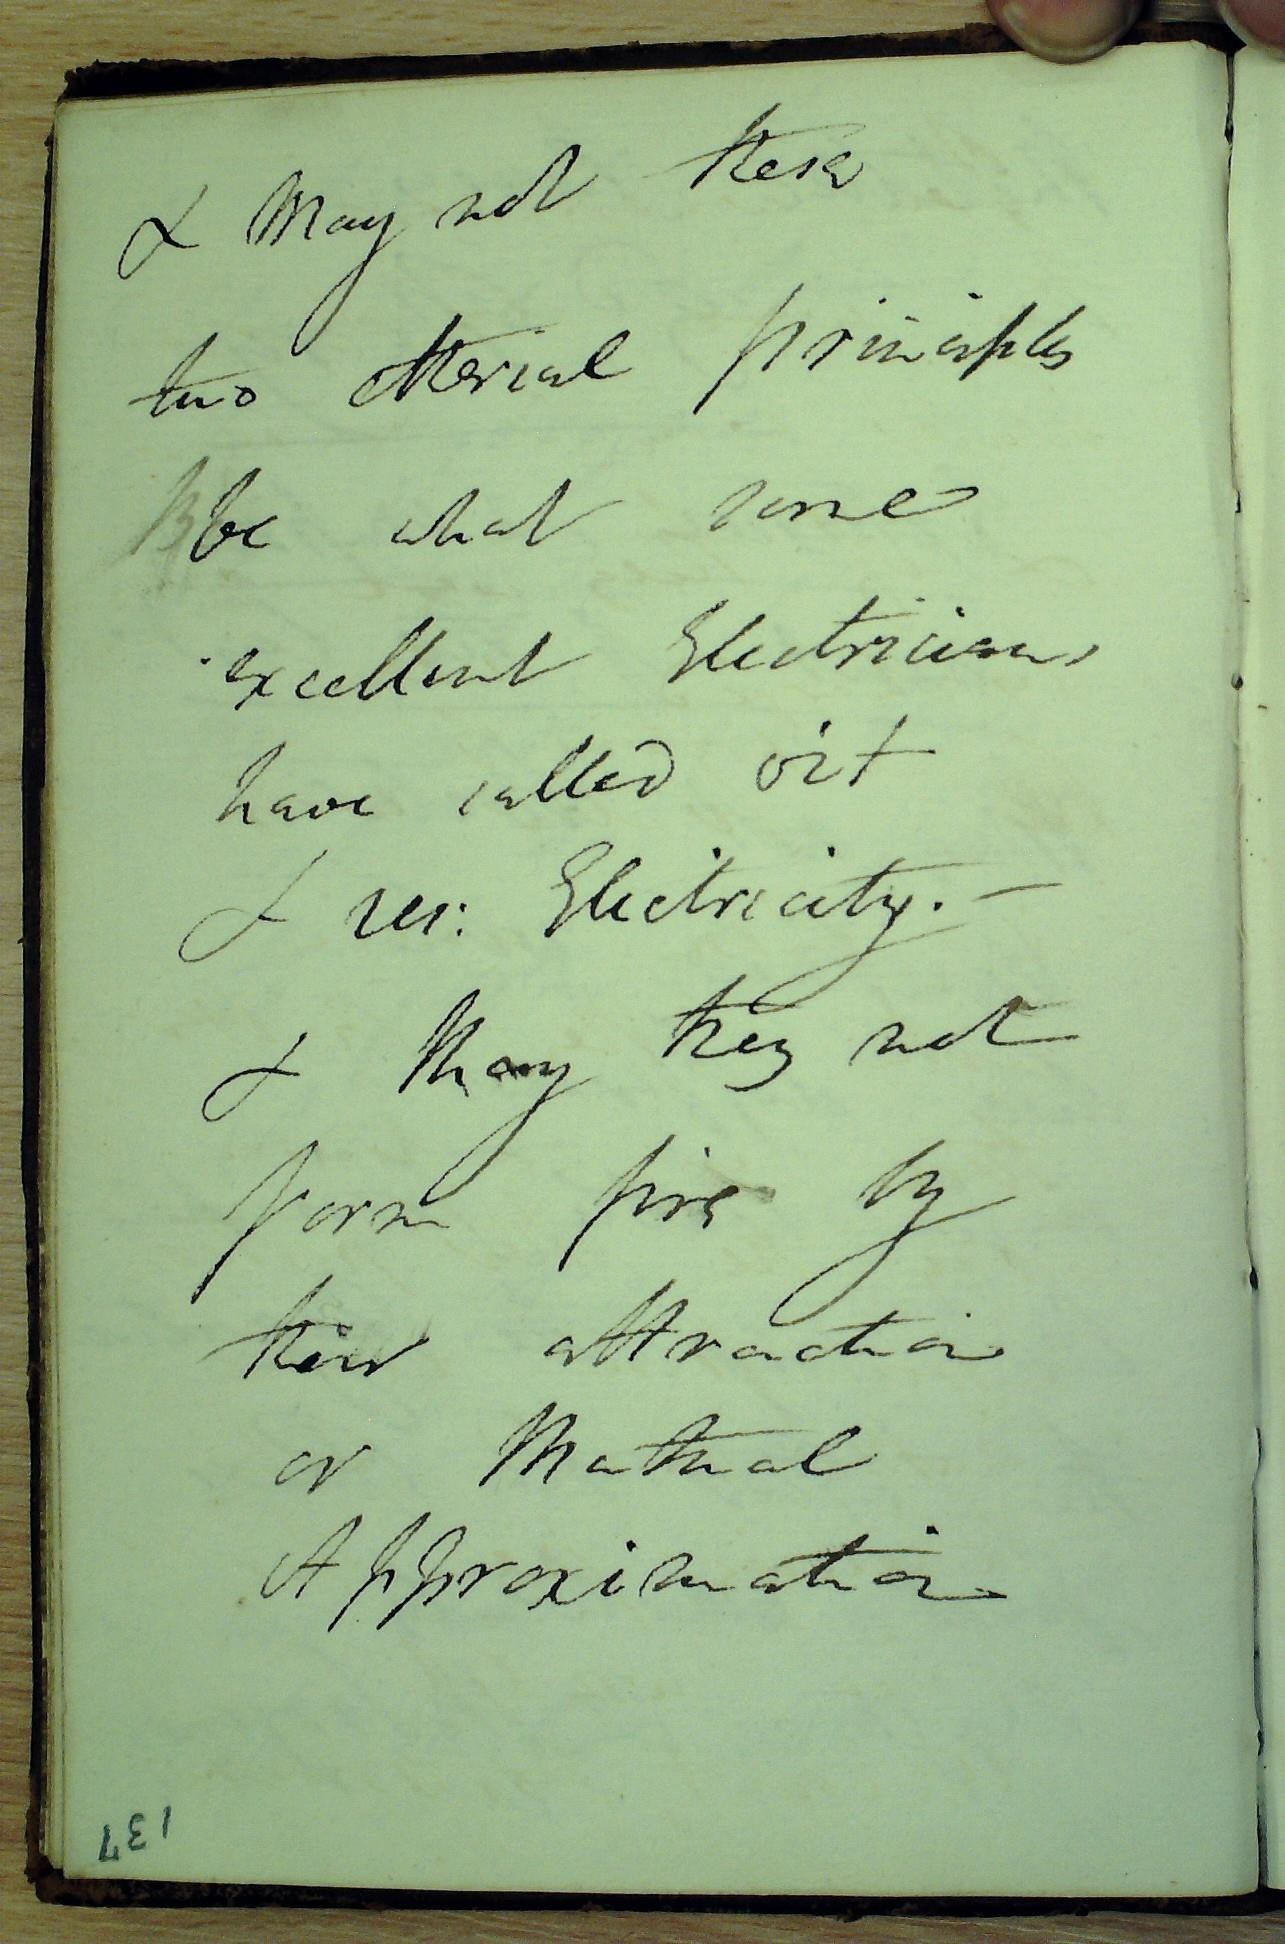 & May not these
two etherial principles
be what some
excellent Electricians
have called vit
& res: Electricity. —
& May they not
form fire by
their attraction
or Mutual
Approximation
137